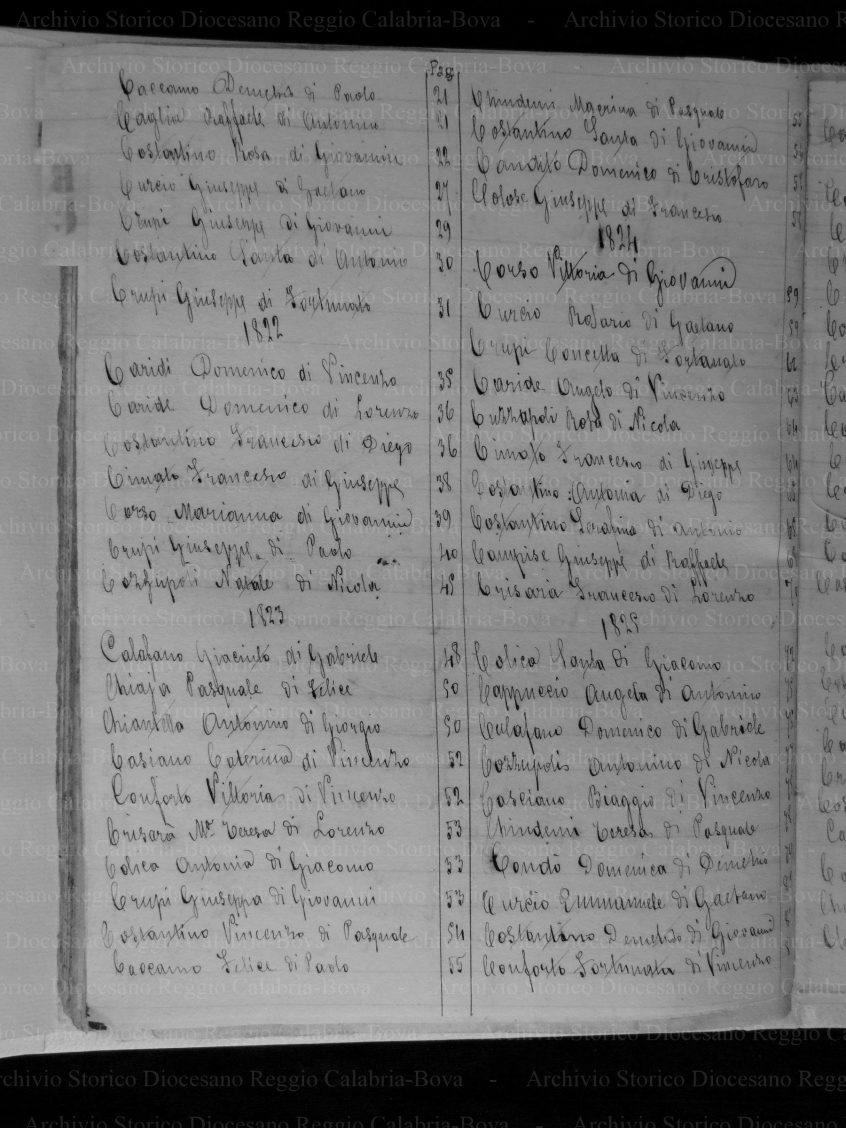 Pag
Caccamo Demetrio di Paolo 21
Caglia Raffaele di Antonino 21
Costantino Rosa di Giovanni 22
Curcio Giuseppe di Gaetano 27
Crupi Giuseppe di Giovanni 29
Costantino Santa di Antonio 30
Crupi Giuseppe di Fortunato 31
1822
Caridi Domenico di Vincenzo 35
Caride Domenico di Lorenzo 36
Costantino Francesco di Diego 36
Cimato Francesco di Giuseppe 38
Corso Marianna di Giovanni 39
Crupi Giuseppe di Paolo 40
Cozzupoli Natale di Nicola 45
1823
Calafano Giacinto di Gabriele 48
Chiaja Pasquale di Felice 50
Chiantella Antonino di Giorgio 50
Casiano Caterina di Vincenzo 52
Conforto Vittoria di Vincenzo 52
Crisarà Mª Teresa di Lorenzo 53
Colica Antonia di Giacomo 53
Crupi Giuseppa di Giovanni 53
Costantino Vincenzo di Pasquale 54
Caccamo Felice di Paolo 55
Chindemi Macrina di Pasquale
Costantino Santa di Giovanni
Candito Domenico di Cristofaro
Giuseppe di Francesco
1824
Corso Vittoria di Giovanni 59
Curcio Rosario di Gaetano 59
Crupi Concetta di Fortunato
Caride Angelo di Vincenzo 63
Cuzzapoli Rosa di Nicola 64
Cimato Francesco di Giuseppe 64
Costantino Antonia di Diego
Costantino Serafina di Antonio 68
Campise Giuseppe di Raffaele
Crisarà Francesco di Lorenzo
1825
Colica Santa di Giacomo
Cappuccio Angela di Antonino
Calafano Domenico di Gabriele
Cozzupolis Antonino di Nicola
Casciano Biaggio di Vincenzo
Chindemi Teresa di Pasquale
Condò Domenica di Demetrio
Curcio Emmanuele di Gaetano
Costantino Demetrio di Giovanni
Conforto Fortunata di Vincenzo
Archivio Storico Diocesano Reggio Calabria-Bova